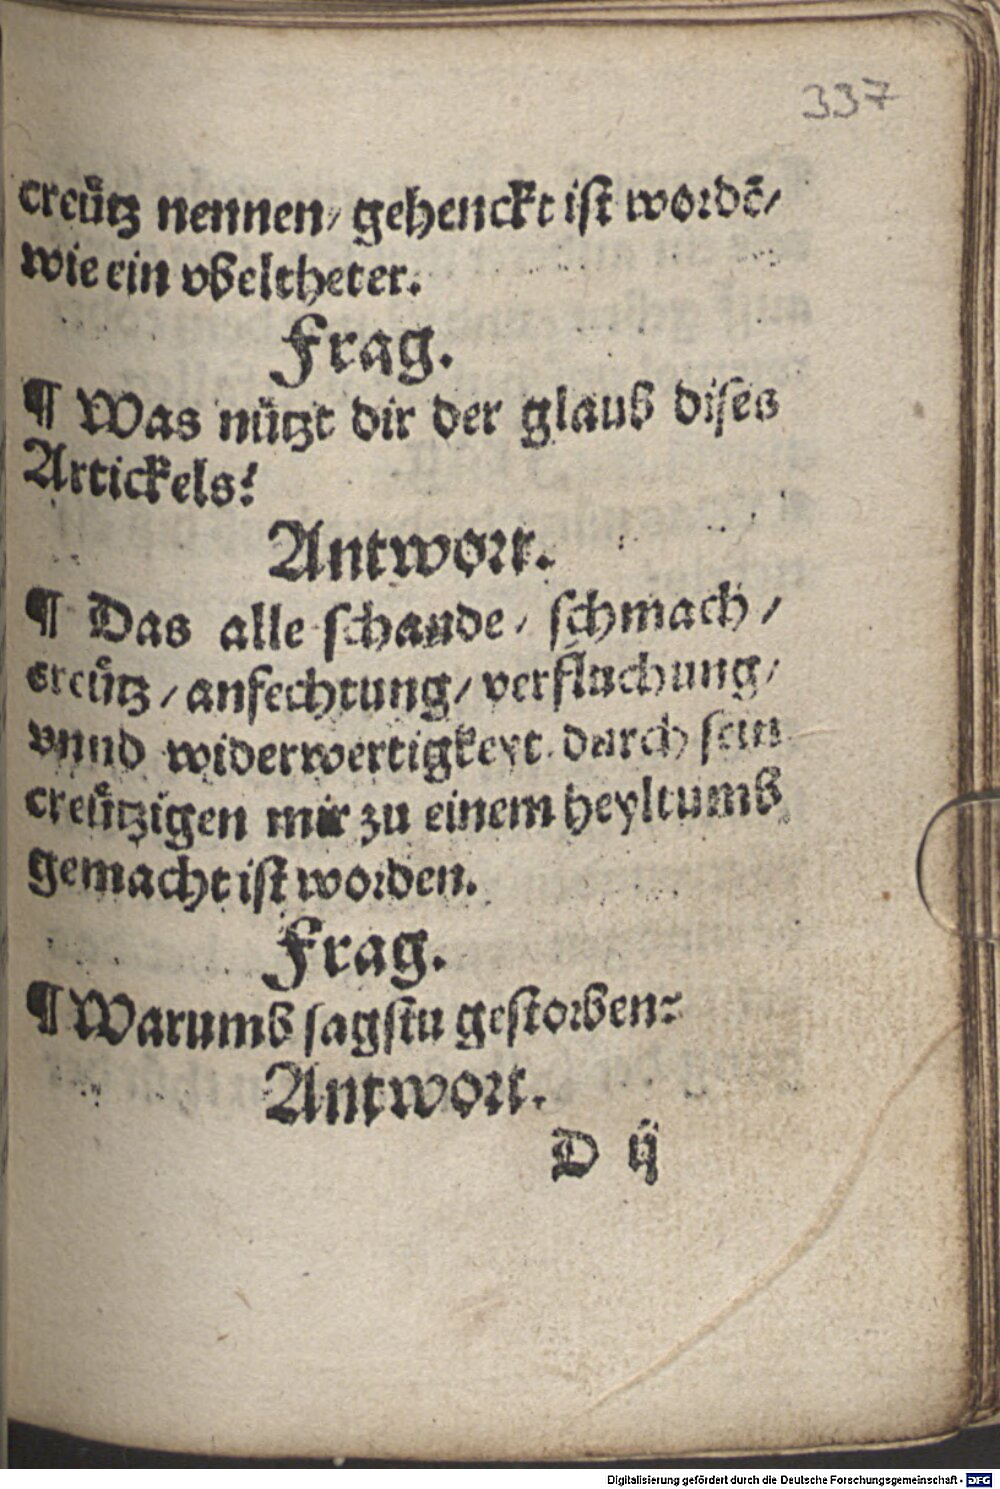 337
creuͤtz nennen/ gehenckt ist wordē/
wie ein vbeltheter.
Frag.
¶ Was nuͤtzt dir der glaub dises
Artickels?
Antwort.
¶ Das alle schande/ schmach/
creuͤtz/ anfechtung/ verfluchung/
vnnd widerwertigkeyt durch sein
creuͤtzigen mir zu einem heyltumb
gemacht ist worden.
Frag.
¶ Warumb sagstu gestorben?
Antwort.
D ij
Digitalisierung gefördert durch die Deutsche Forschungsgemeinschaft - DFG